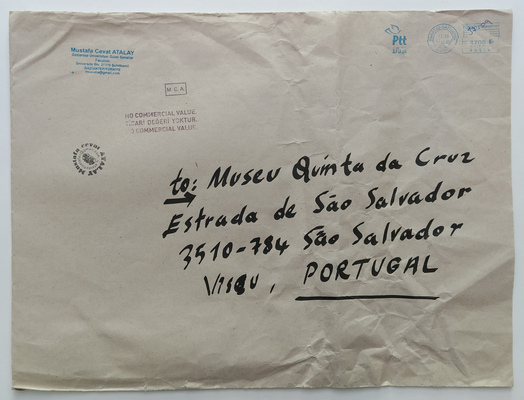 Mustafa Cevat ATALAY
Ptt
M G A
NO COMMERCIAL VALUE.
TİCARİ DEĞERİ YOKTUR.
NO COMMERCIAL VALUE.
Mustafa cevat ATALAY
to: Museu Quinta da Cruz
Estrada de São Salvador
3510-784 São Salvador
Viseu, PORTUGAL